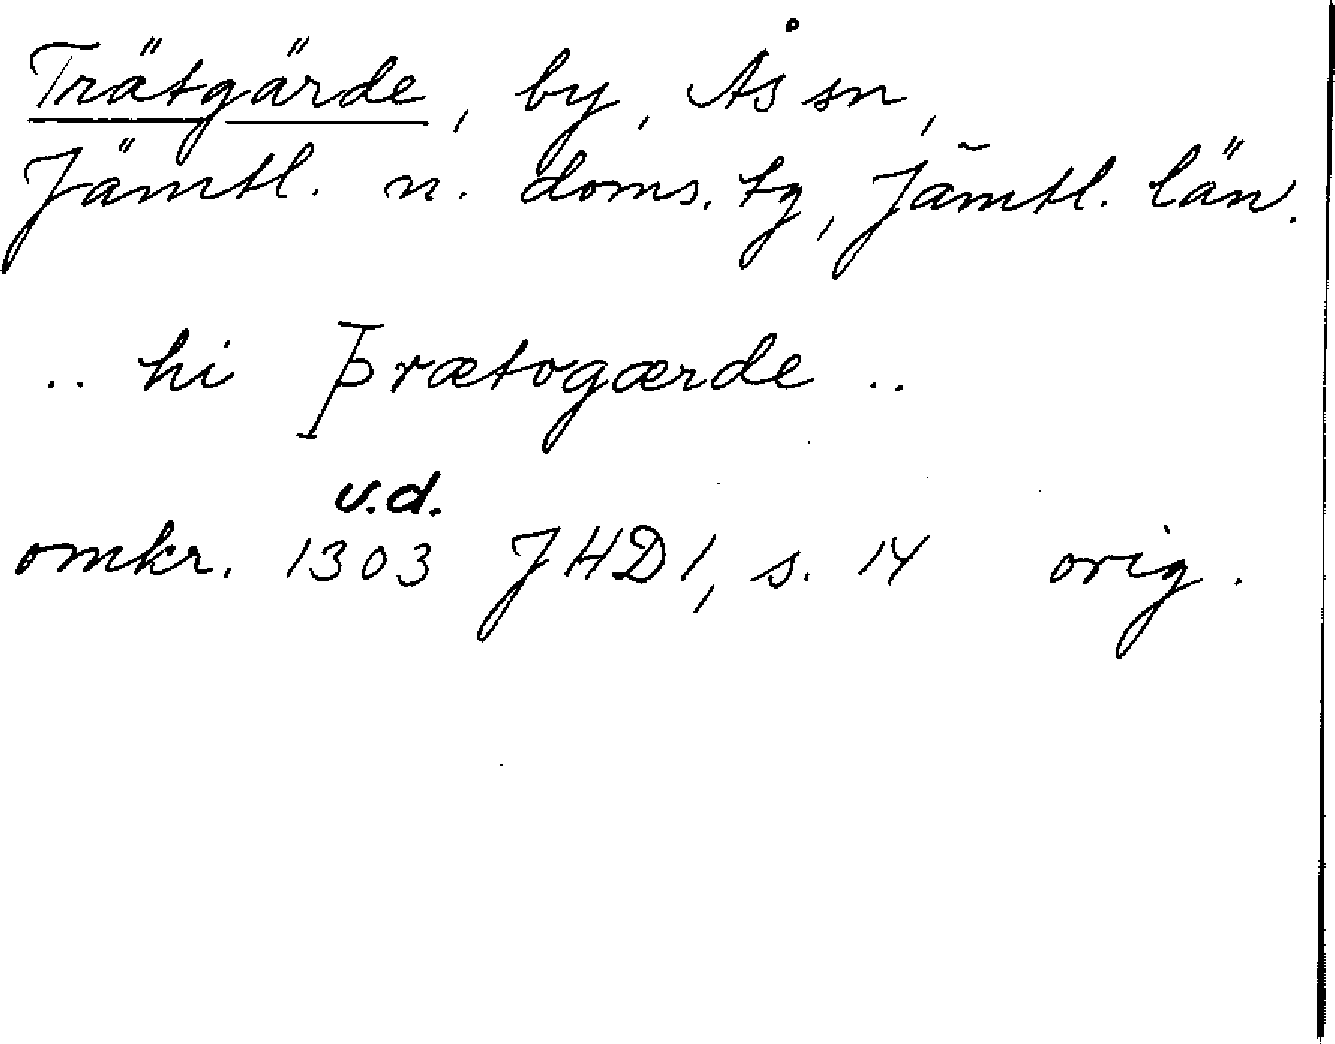 Trätgärde, by, Ås sn,
Jämtl. n. doms. tg, Jämtl. län.
.. hi Þrætogærde ..
u.d.
omkr. 1303 JHD 1, s. 14 orig.